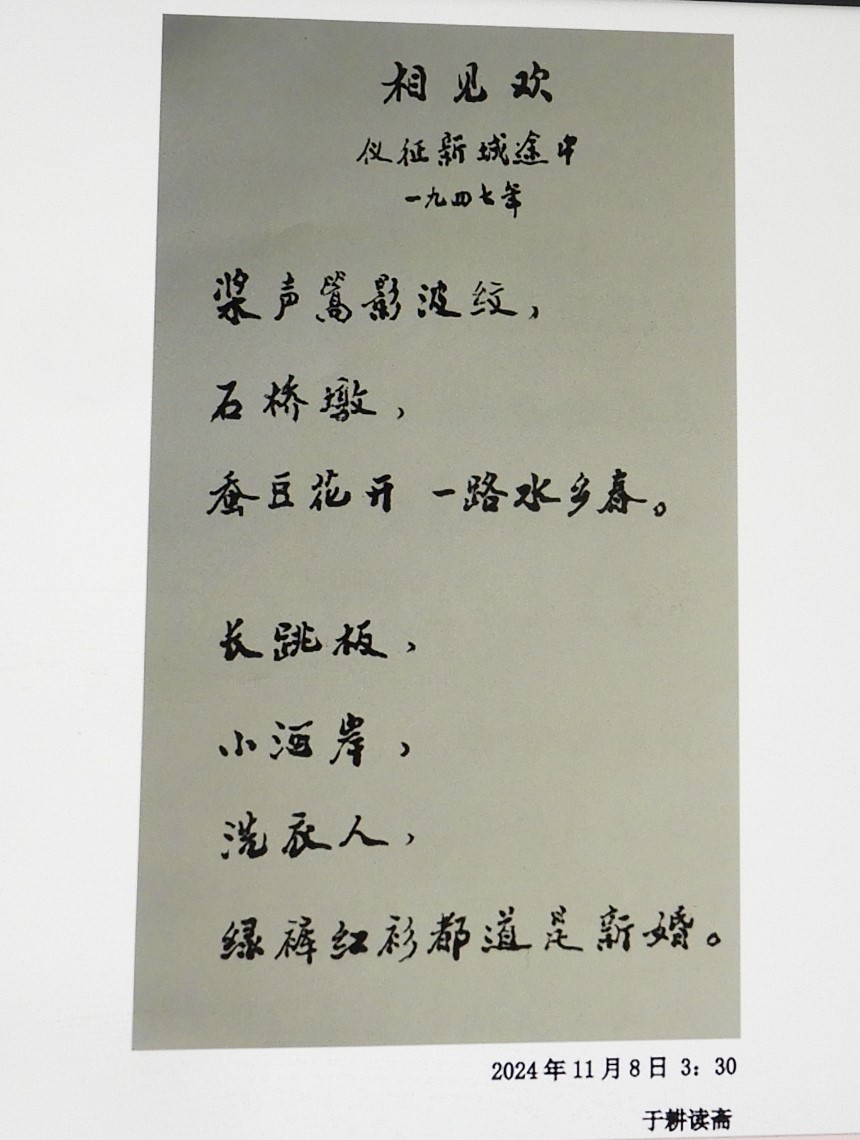 相见欢
仪征新城途中
一九四七年
桨声篙影波纹，
石桥墩，
蚕豆花开 一路水乡春。
长跳板，
小河岸，
洗衣人，
绿裤红衫都道是新婚。
2024年11月8日 3：30
于耕读斋